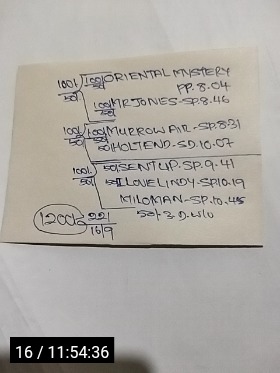 100/ 100/ ORIENTAL MYSTERY
50/ 50/ PP. 8.04
100/ MR JONES-SP.8.46
50/
100/ 100/ MURROW AIR-SP.8.31
50/ 50/ HOLTEND-SD.10.07
100/ 50/ SENT UP.SP.9.41
50/ 50/ I LOVE LINDY.SP.10.19
MILOMAN-SP.10.45
50/ 3.D.W/U
1200/ 221
16/9
16 / 11:54:36